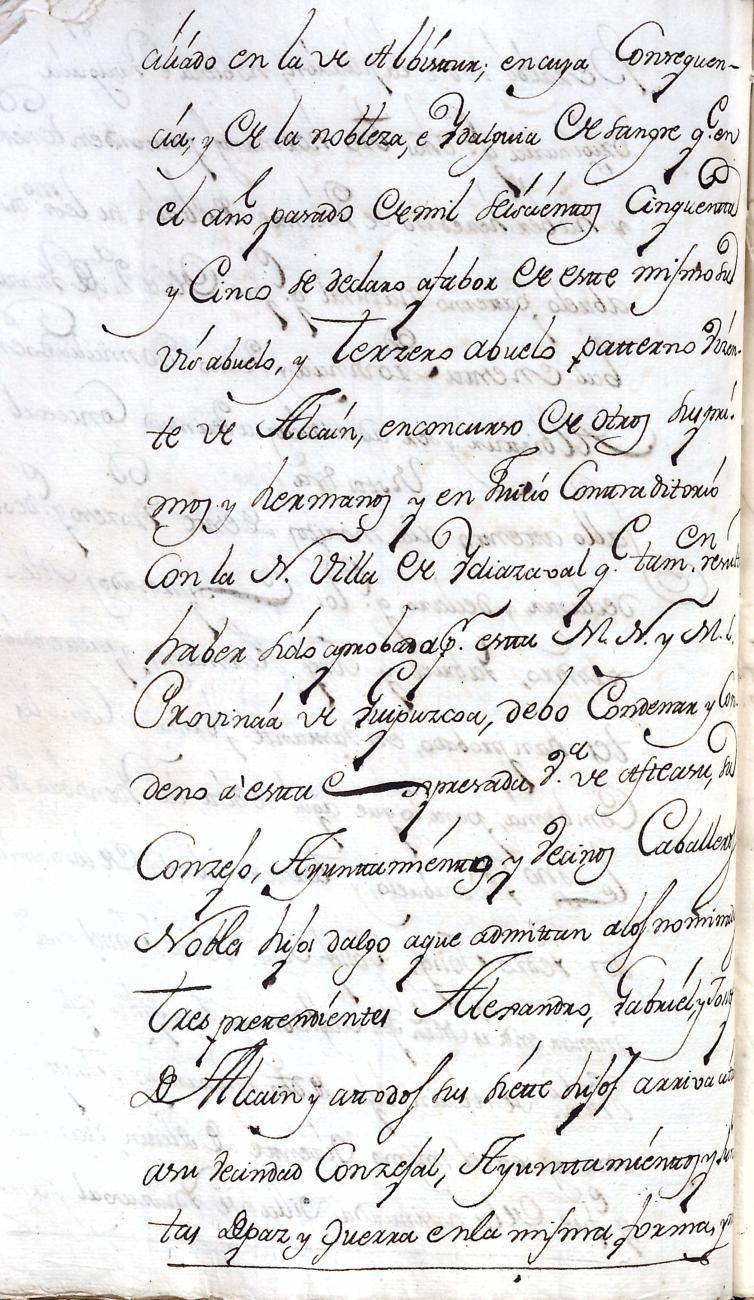 ciliado en la ve Albistur; encuya Consequen-
cia; y de la nobleza, e Ydalguia de sangre q.e en
el año pasado de mil seiscientos Cinquentta
y Cinco se declaro afabor de este mismo su
vis abuelo, y Terzero abuelo patterno Vizen-
te ve Alcain, enconcurso de otros sus pri-
mos y hermanos y en Juicio Contraditorio
Con la N. Villa de Ydiazaval q.e tam.en
haber sido aprobada p.r esta M. N. y M. L.
Provincia ve Guipuzcoa, debo Condenar y Con
deno à esta expresada V.a ve Asteasu, su
Conzejo, Ayunttamientto, y Vecinos Caballeros
Nobles hijos dalgo áque admittan alos nominados
tres pretendientes Alexandro, Gabriel, y
De Alcain y attodos sus siette hijos arriva
asu Vecindad Conzejal, Ayunttamienttos y
tas De paz y Guerra enla misma forma,